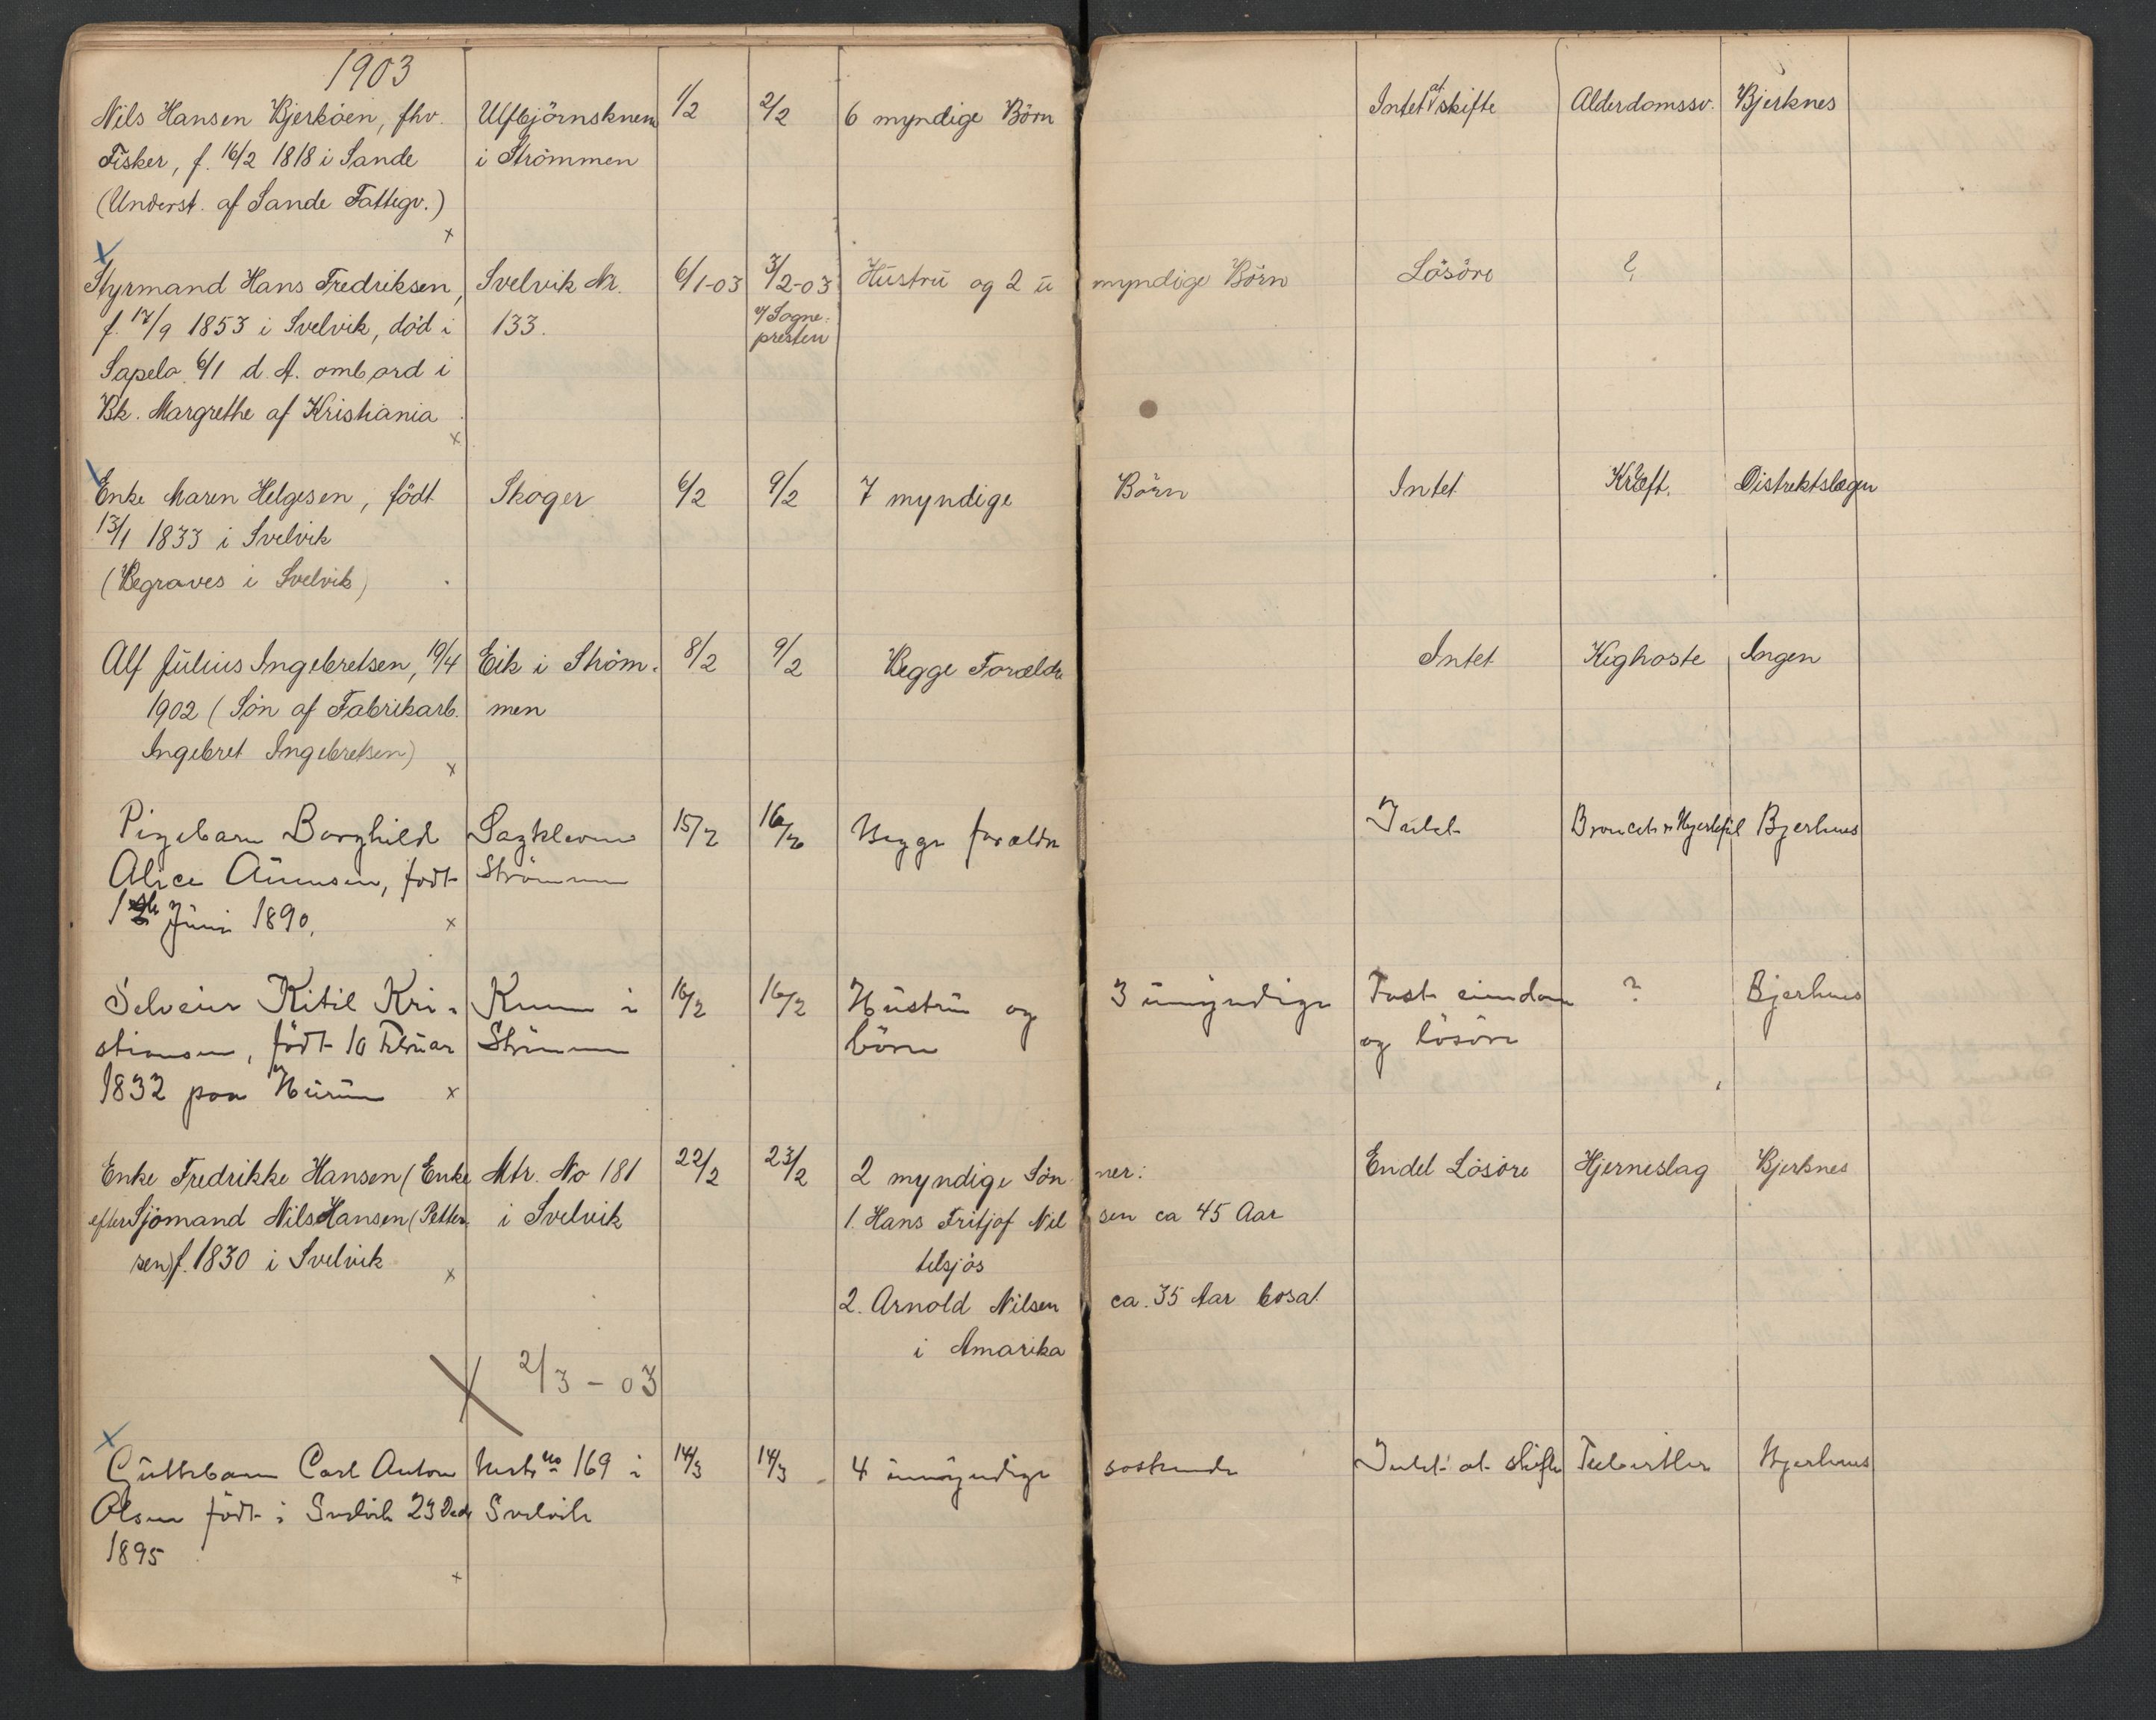 1903
Nils Hansen Bjerköen, fhv. Ulfbjörnsknem 1/2 2/2 6 myndige Börn Intet at skifte Alderdomssv. Bjerknes
Fisker, f. 16/2 1818 i Sande i Strömmen
(Underst. af Sande Fattigv.)
x
x
Styrmand Hans Fredriksen, Svelvik Nr. 6/1-03 3/2-03 Hustru og 2 u myndige Börn Lösöre ?
f. 17/9 1853 i Svelvik, död i 133. v/Sogne-
presten
Sapelo 6/1 d. A. ombord i
Bk. Margrethe af Kristiania
x
Enke Maren Helgesen, födt Skoger 6/2 9/2 7 myndige Börn Intet Kræft. Distriktslægen
13/1 1833 i Svelvik
(Begraves i Svelvik)
Alf Julius Ingebretsen, 19/4 Eik i Ström- 8/2 9/2 Begge Forældre Intet Kighoste Ingen
1902 (Sön af Fabrikarb. men
Ingebret Ingebretsen)
x
Pigebarn Borghild Sagkleven 15/2 16/2 Begge forældre Intet Broncit v Hjertefeil Bjerknes
Alice Amensen, födt Strömmen
1ste Juni 1890. x
Selveier Kitil Kri- Knem i 16/2 16/2 Hustru og 3 umyndige Fast eiendom ? Bjerknes
stiansen, födt 10 Februar Strömmen börn og lösöre
1832 paa Hurum x
Enke Fredrikke Hansen (Enke Mtr. No 181 22/2 23/2 2 myndige Sön ner: Endel Lösöre Hjerneslag Bjerknes
efter Sjömand Nils Hansen (Petter- i Svelvik 1. Hans Fritjof Nil sen ca 45 Aar
sen) f. 1830 i Svelvik tilsjös
x
2. Arnold Nilsen ca. 35 Aar bosat
i Amerika
x 2/3 - 03
x
Guttebarn Carl Anton No 169 i 14/3 14/3 4 umyndige söskende Intet at skifte Tuberkler Bjerknes
Olsen födt i Svelvik 23 Decbr Svelvik
1895
x